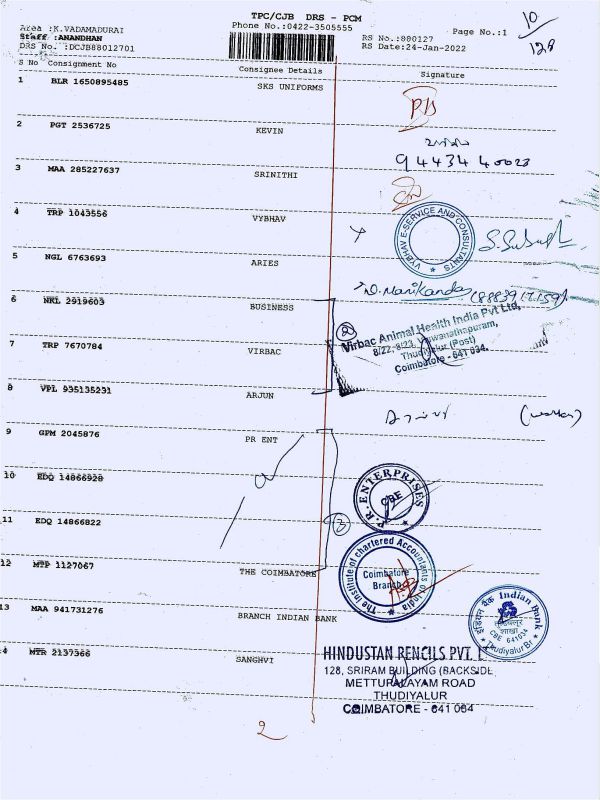 TPC/CJB DRS - PCM
Phone No.:0422-3505555
Area :K.VADAMADURAI
Staff :ANANDHAN
DRS No. :DCJB88012701
RS No.:880127
RS Date:24-Jan-2022
Page No.:1
10
128
S No Consignment No Consignee Details Signature
1 BLR 1650895485 SKS UNIFORMS
2 PGT 2536725 KEVIN
9443440023
3 MAA 285227637 SRINITHI
4 TRP 1043556 VYBHAV
VYBHAV E-SERVICE AND CONSULTANTS
5 NGL 6763693 ARIES
6 NKL 2919603 BUSINESS
2
Virbac Animal Health India Pvt Ltd,
8/22, 8/23, Viswanathapuram,
Thudiyalur (Post)
Coimbatore - 641 034.
7 TRP 7670784 VIRBAC
8 VPL 935135231 ARJUN
9 GPM 2045876 PR ENT
10 EDQ 14866928
P.R. ENTERPRISES
CBE
11 EDQ 14866822
3
12 MTP 1127067 THE COIMBATORE
The Institute of chartered Accountants of India
Coimbatore
Branch
13 MAA 941731276 BRANCH INDIAN BANK
इंडियन बैंक Indian Bank
शाखा
CBE 641034
Thudiyalur Br
14 MTR 2137366 SANGHVI
HINDUSTAN PENCILS PVT. L
128, SRIRAM BUILDING (BACKSIDE,
METTUPALAYAM ROAD
THUDIYALUR
COIMBATORE - 641 034
2